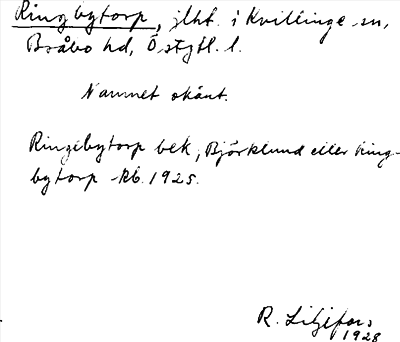 Ringbytorp, jlht. i Kvillinge sn,
Bråbo hd, Östgtl. l.
Namnet okänt.
Ringebytorp bek, Björklund eller Ring-
bytorp -kb. 1925.
R. Liljefors
1928